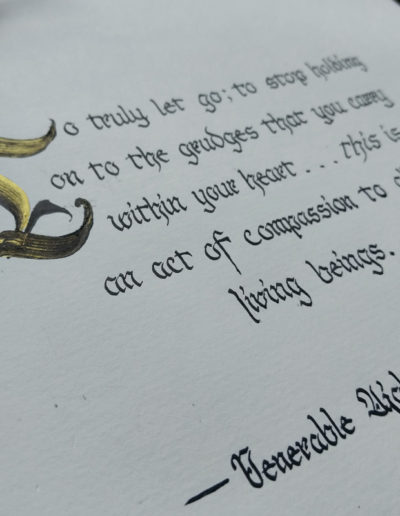 To truly let go; to stop holding
on to the grudges that you carry
within your heart . . . this is
an act of compassion to
living beings.
— Venerable